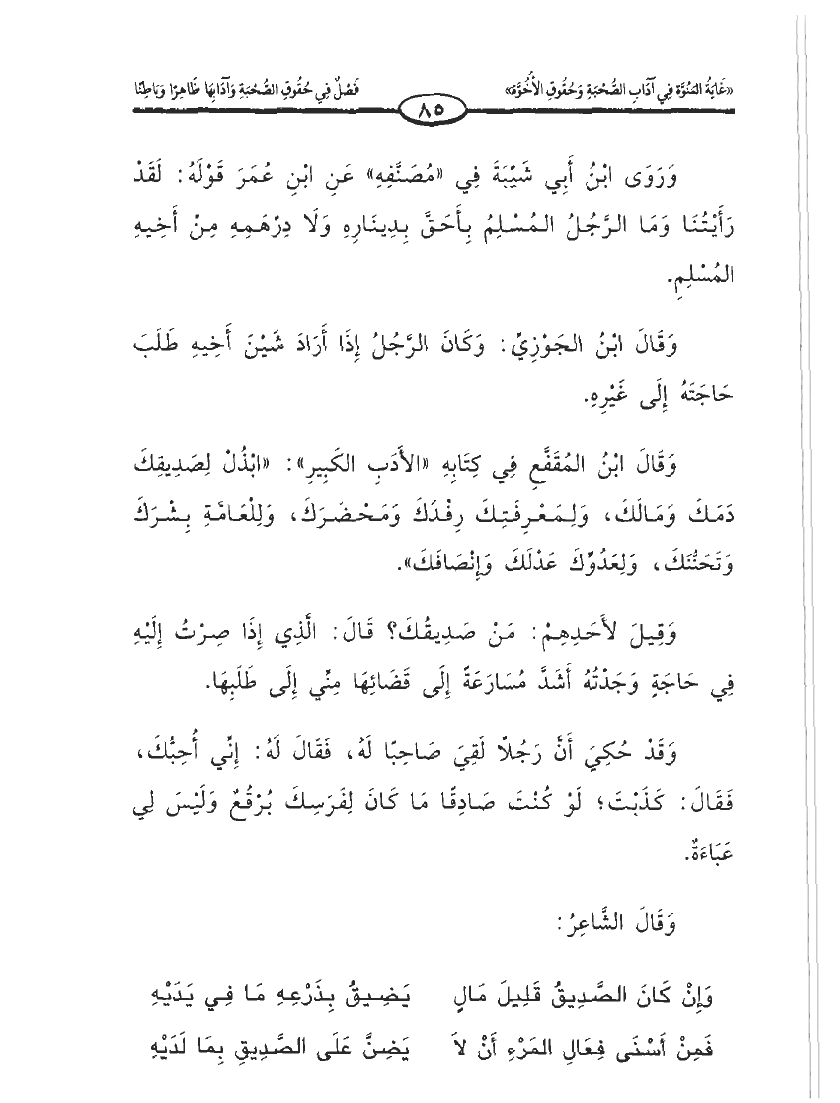 «غَايَةُ المُنُوَّة فِي آدَابِ الصُّحْبَةِ وَحُقُوقِ الأُخُوَّة» فَصْلٌ فِي حُقُوقِ الصُّحْبَةِ وَآدَابِهَا ظَاهِرًا وَبَاطِنًا
٨٥
وَرَوَى ابْنُ أَبِي شَيْبَةَ فِي «مُصَنَّفِهِ» عَنِ ابْنِ عُمَرَ قَوْلَهُ: لَقَدْ
رَأَيْتُنَا وَمَا الرَّجُلُ المُسْلِمُ بِأَحَقَّ بِدِينَارِهِ وَلَا دِرْهَمِهِ مِنْ أَخِيهِ
المُسْلِمِ.
وَقَالَ ابْنُ الجَوْزِيِّ: وَكَانَ الرَّجُلُ إِذَا أَرَادَ شَيْنَ أَخِيهِ طَلَبَ
حَاجَتَهُ إِلَى غَيْرِهِ.
وَقَالَ ابْنُ المُقَفَّعِ فِي كِتَابِهِ «الأَدَبِ الكَبِيرِ»: «ابْذُلْ لِصَدِيقِكَ
دَمَكَ وَمَالَكَ، وَلِمَعْرِفَتِكَ رِفْدَكَ وَمَحْضَرَكَ، وَلِلْعَامَّةِ بِشْرَكَ
وَتَحَنُّنَكَ، وَلِعَدُوِّكَ عَدْلَكَ وَإِنْصَافَكَ».
وَقِيلَ لأَحَدِهِمْ: مَنْ صَدِيقُكَ؟ قَالَ: الَّذِي إِذَا صِرْتُ إِلَيْهِ
فِي حَاجَةٍ وَجَدْتُهُ أَشَدَّ مُسَارَعَةً إِلَى قَضَائِهَا مِنِّي إِلَى طَلَبِهَا.
وَقَدْ حُكِيَ أَنَّ رَجُلًا لَقِيَ صَاحِبًا لَهُ، فَقَالَ لَهُ: إِنِّي أُحِبُّكَ،
فَقَالَ: كَذَبْتَ؛ لَوْ كُنْتَ صَادِقًا مَا كَانَ لِفَرَسِكَ بُرْقُعٌ وَلَيْسَ لِي
عَبَاءَةٌ.
وَقَالَ الشَّاعِرُ:
وَإِنْ كَانَ الصَّدِيقُ قَلِيلَ مَالٍ يَضِيقُ بِذَرْعِهِ مَا فِي يَدَيْهِ
فَمِنْ أَسْنَى فِعَالِ المَرْءِ أَنْ لاَ يَضِنَّ عَلَى الصَّدِيقِ بِمَا لَدَيْهِ